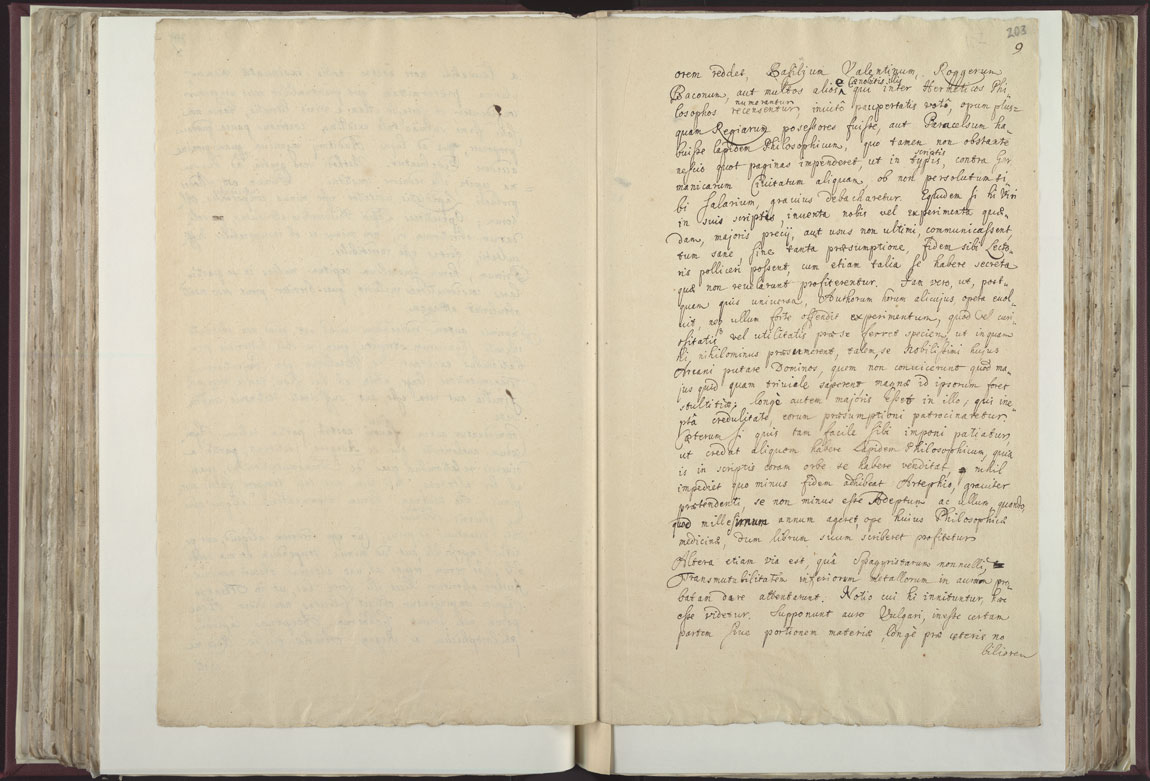 203
9
orem reddes, Basilium Valentinum, Roggerum
Baconum, aut multos alios e Coenobitis illis qui inter Hermeticos Phi
losophos numerantur recensentur invitô paupertatis votô, opum plus=
quam Regiarum possessores fuisse, aut Paracelsum ha„
buisse lapidem Philosophicum, quo tamen non obstante
nescio quot paginas impenderet, ut in scriptis typis, contra Ger
manicarum Civitatum aliquam, ob non persolutum si
bi Salarium, gravius debacharetur. Equidem si hi Viri
in suis scriptis, inventa nobis vel experimenta quæ„
dam, majoris precij, aut usus non ultimi, communicassent
tum sane, sine tanta præsumptione, fidem sibi Lecto„
ris polliceri possent, cum etiam talia se habere secreta
quæ non revelarunt profiterentur. Jam vero, ut, post„
quam quis universa, Authorum horum alicujus opera evol„
vit, non ullum forte offendit experimentum, quod vel curi„
ositatis vel utilitatis præ se ferret speciem, ut inquam
hi, nihilominus præsumerent, talem, se Nobilissimi hujus
Arcani putare Dominos, quem non convicerunt quod ma„
jus quid quam triviale saperent magnæ id ipsorum foret
stultitiæ; longè autem majoris esset in illo, qui ine„
ptâ credulitate eorum præsumptioni patrocinaretur.
Cæterum si quis tam facile sibi imponi patiatur,
ut credat aliquem habere Lapidem Philosophicum, quia
is in scriptis coram orbe se habere venditat, nihil
impediet quo minus fidem adhibeat Artephio, graviter
prætendenti, se non minus esse Adeptum ac ullum quondo,
quod millesimum annum ageret, ope huius Philosophicæ
medicinæ, dum librum suum scriberet profitetur
Altera etiam via est, quâ Spagyristarum nonnulli,
Transmutabilitatem inferiorum metallorum in aurum pro
batam dare attenterunt. Notio cui hi innituntur, hæc
esse videtur. Supponunt auro Vulgari, inesse certam
partem sive portionem materiæ, longè præ cæteris no
biliorem